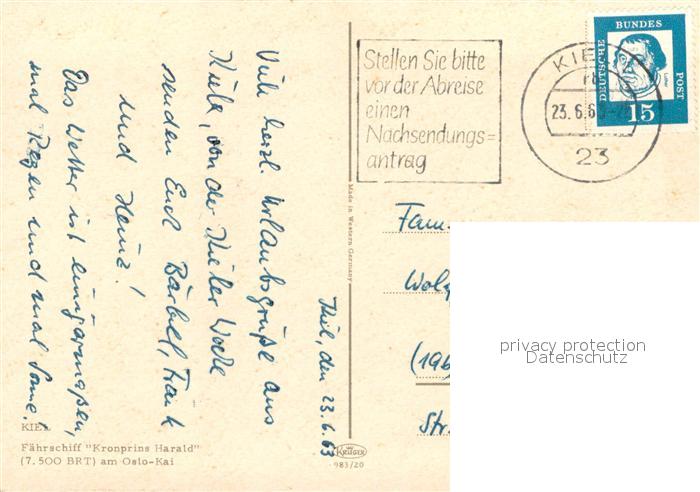 Kiel, den 23.6.63
Viele herzl. Urlaubsgrüße aus
Kiel, von der Kieler Woche
senden Euch Bärbel, Frank
und Heinz!
Das Wetter ist einigermaßen,
mal Regen und mal Sonne.
KIEL
Fährschiff "Kronprins Harald"
(7.500 BRT) am Oslo-Kai
Made in Western Germany
KRÜGER
983/20
Stellen Sie bitte
vor der Abreise
einen
Nachsendungs=
antrag
KIEL
23.6.6
23
DEUTSCHE
BUNDES
POST
15
Fam.
Wolf
(196
Str.
privacy protection
Datenschutz